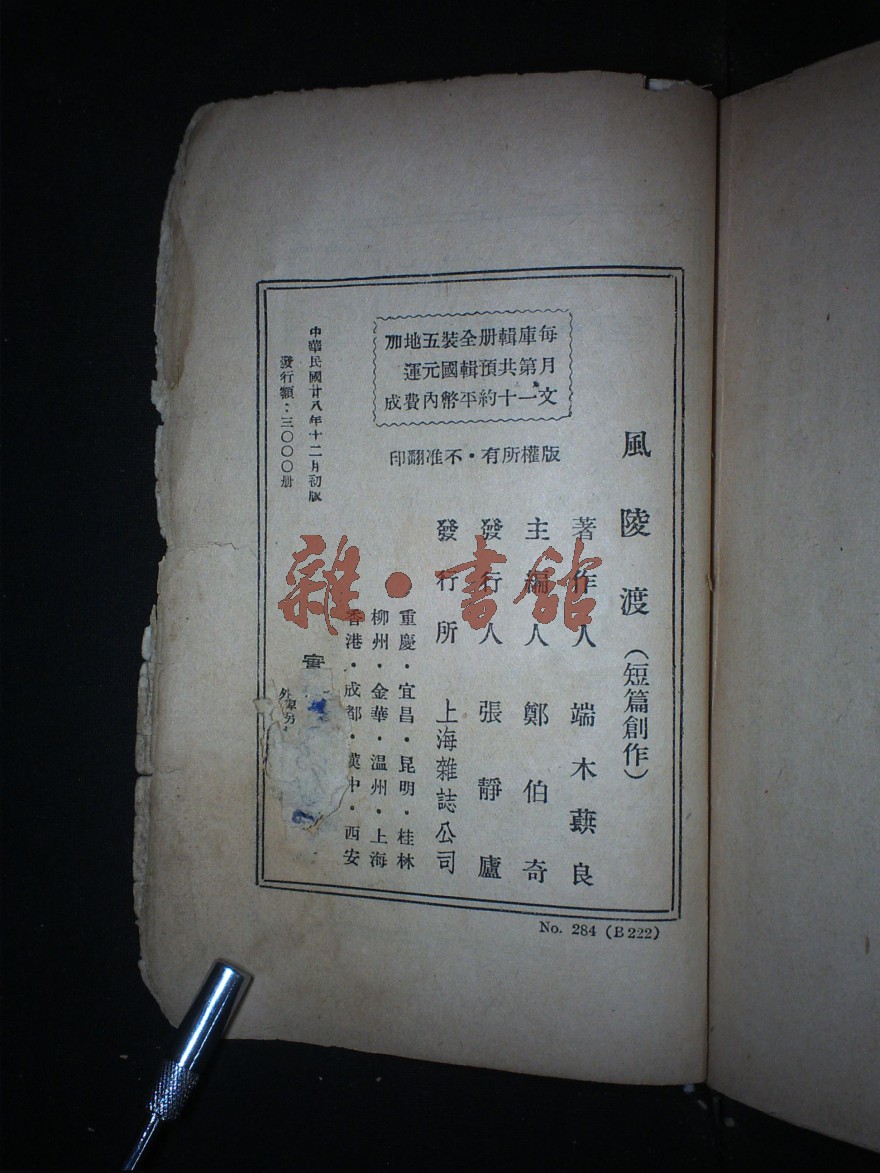 風陵渡（短篇創作）
每月文
庫第一
輯共十
册預約
全輯平
裝國幣
五元內
地運費
加成
版權所有・不准翻印
著作人 端木蕻良
主編人 鄭伯奇
發行人 張靜廬
發行所 上海雜誌公司
重慶・宜昌・昆明・桂林
柳州・金華・温州・上海
香港・成都・漢中・西安
中華民國廿八年十二月初版
發行額：三〇〇〇册
實
外埠另
No. 284 (B 222)
雜・書館